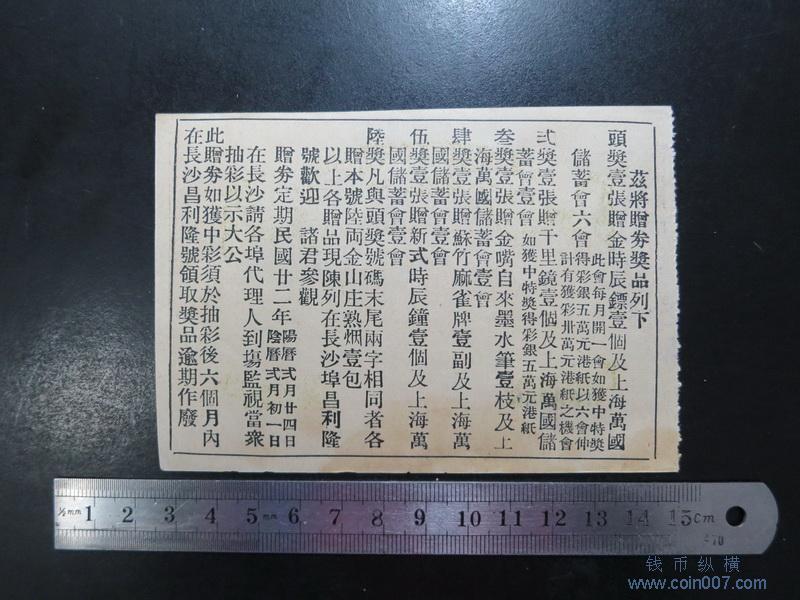 茲將贈券獎品列下
頭獎壹張贈金時辰鏢壹個及上海萬國
儲蓄會六會 此會每月開一會如獲中特獎
得彩銀五萬元港紙以六會伸
計有獲彩卅萬元港紙之機會
弍獎壹張贈千里鏡壹個及上海萬國儲
蓄會壹會 如獲中特獎得彩銀五萬元港紙
叁獎壹張贈金嘴自來墨水筆壹枝及上
海萬國儲蓄會壹會
肆獎壹張贈蘇竹麻雀牌壹副及上海萬
國儲蓄會壹會
伍獎壹張贈新式時辰鐘壹個及上海萬
國儲蓄會壹會
陸獎凡與頭獎號碼末尾兩字相同者各
贈本號陸両金山庄熟烟壹包
以上各贈品現陳列在長沙埠昌利隆
號歡迎 諸君參觀
贈券定期民國廿二年 陽曆弍月廿四日
陰曆弍月初一日
在長沙請各埠代理人到塲監視當衆
抽彩以示大公
此贈券如獲中彩須於抽彩後六個月內
在長沙昌利隆號領取獎品逾期作廢
½mm 1 2 3 4 5mm 6 7 8 9 10 11 12 13 14 15cm
钱币纵横
www.coin007.com